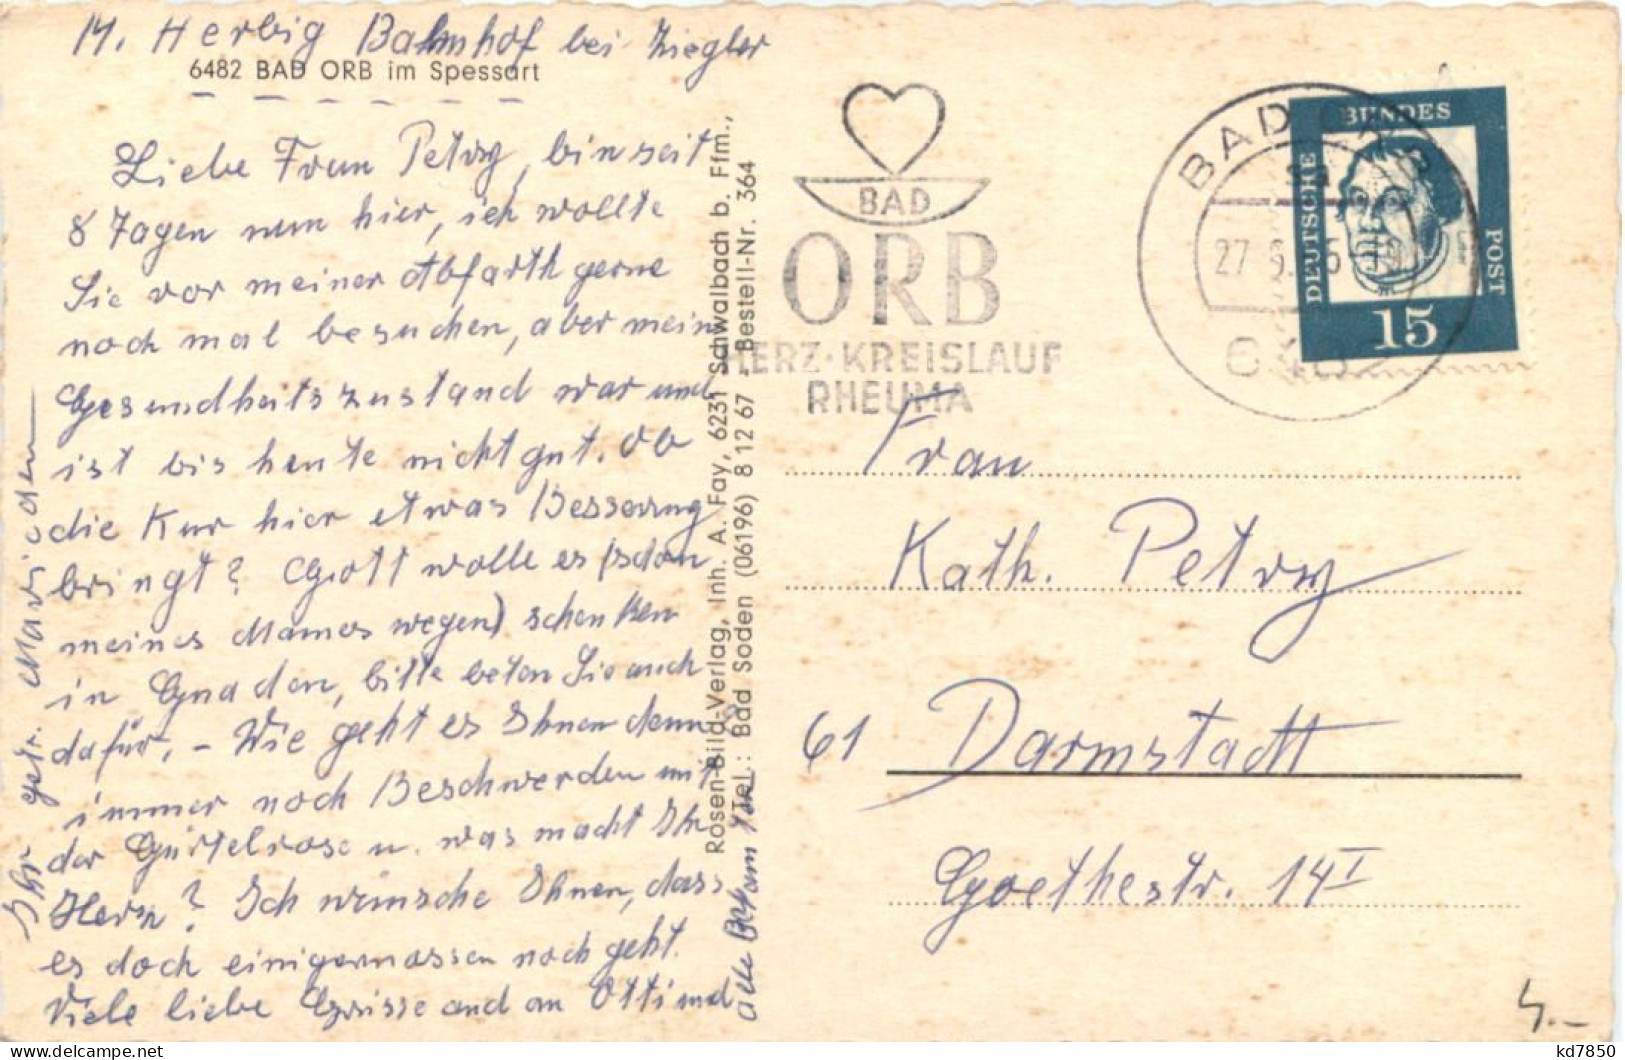 M. Herbig Bahnhof bei Ziegler
6482 BAD ORB im Spessart
Liebe Frau Petry, bin seit
8 Tagen nun hier, ich wollte
Sie vor meiner Abfarth gerne
noch mal besuchen, aber mein
Gesundheitszustand war und
ist bis heute nicht gut. Ob
die Kur hier etwas Besserung
bringt? Gott wolle es (schon
meines Mannes wegen) schenken
in Gnaden, bitte beten Sie auch
dafür. - Wie geht es Ihnen denn
immer noch Beschwerden mit
der Gürtelrose u. was macht Ihr
Herz? Ich wünsche Ihnen, dass
es doch einigermassen noch geht.
Viele liebe Grüsse auch an Otti und
alle Bekannten
Ihr getr.
Rosen-Bild-Verlag, Inh. A. Fay, 6231 Schwalbach b. Ffm.,
Tel.: Bad Soden (06196) 8 12 67 - Bestell-Nr. 364
BAD
ORB
HERZ·KREISLAUF
RHEUMA
BAD ORB
27.6.
DEUTSCHE
BUNDES
POST
Luther
15
Frau
Kath. Petry
61 Darmstadt
Goethestr. 14 I
4.-
kd7850